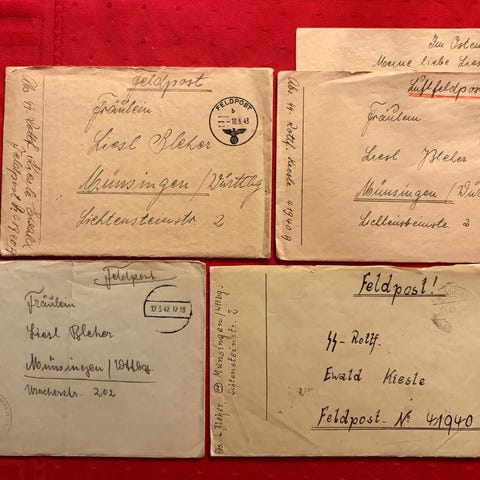 Feldpost
Fräulein
Liesl Bleher
Münsingen / Württbg.
Lichtensteinstr. 2
FELDPOST
b
18.6.43
Im Osten
Meine liebe Lies
Luftfeldpos
Fräulein
Liesl Bleher
Münsingen / Württ
Lichtensteinstr. 2
Abs. SS-Rottf. Kiesle
41940 G
Feldpost
Fräulein
Liesl Bleher
Münsingen / Wttbg.
Uracherstr. 202
Feldpost!
SS-Rottf.
Ewald Kiesle
Feldpost-Nr 41940
Bleher, (14) Münsingen / Wttbg.
Lichtensteinstr. 2